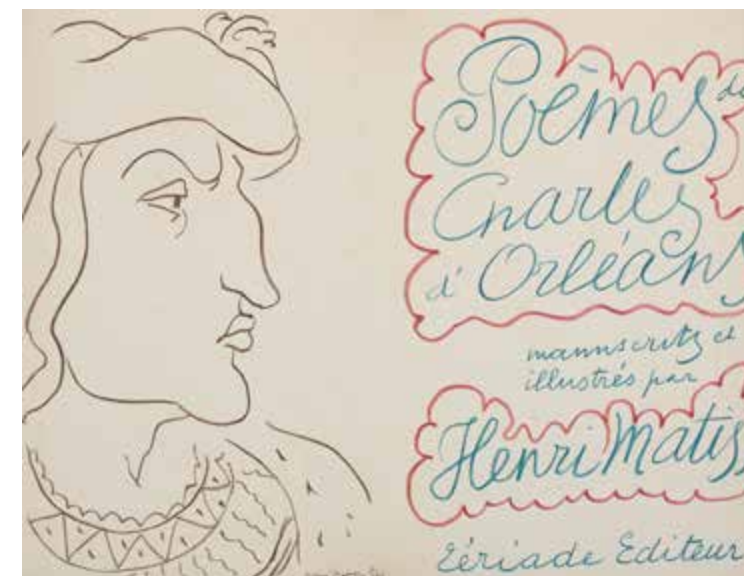 Poèmes de
Charles
d'Orléans
manuscrits et
illustrés par
Henri Matiss
Tériade Editeur